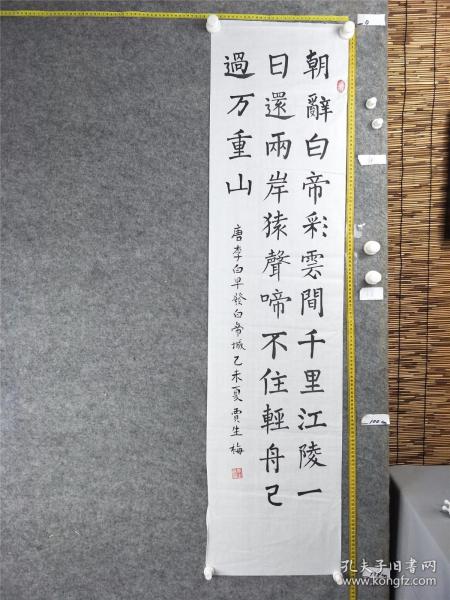 朝辭白帝彩雲間千里江陵一
日還兩岸猿聲啼不住輕舟已
過万重山
唐李白早發白帝城乙未夏賈生梅
孔夫子旧书网
www.kongfz.com